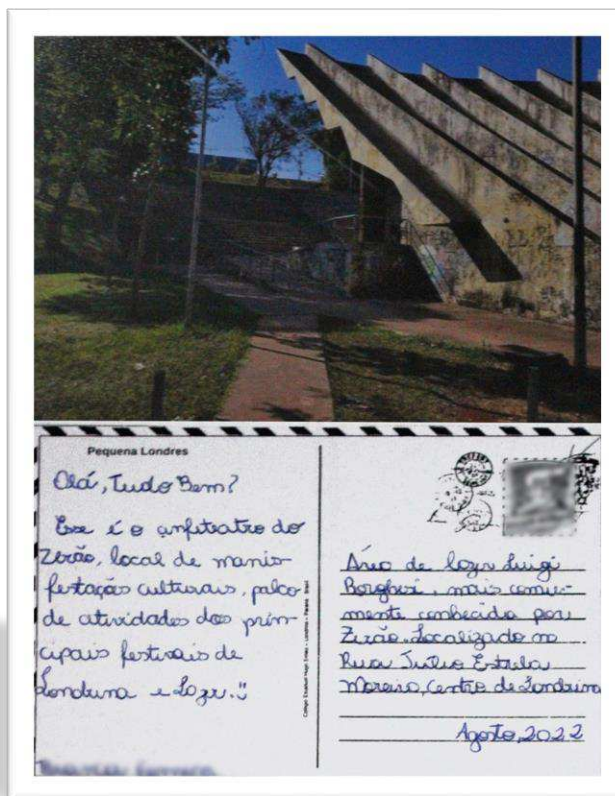 Pequena Londres
Olá, Tudo Bem?
Esse é o anfiteatro do
Zerão, local de manis-
festação culturais, palco
de atividades dos prin-
cipais festivais de
Londrina e Lazer.
Área de lazer Luigi
Borghesi, mais comu-
mente conhecida por
Zerão. Localizado na
Rua Julio Estrela
Moreira, Centro de Londrina
Agosto, 2022